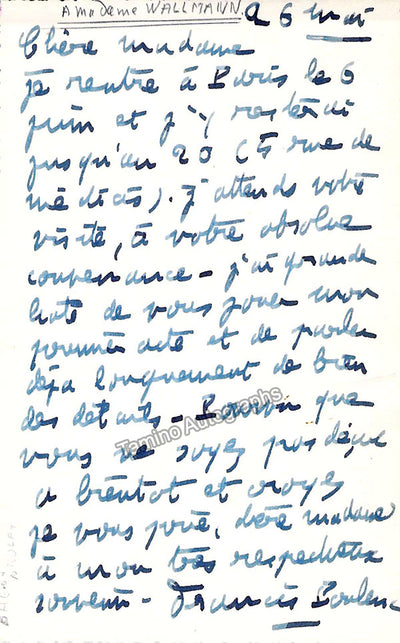 A Madame WALLMANN.
Le 6 mai
Chère madame
je rentre à Paris le 6
juin et j'y resterai
jusqu'au 20 (5 rue de
médicis). j'attends votre
visite, à votre absolue
convenance – j'ai grande
hate de vous jouer mon
premier acte et de parler
déjà longuement de bien
des détails – Pourvu que
vous ne soyez pas déçue
a bientot et croyez
je vous prie, chère madame
à mon très respectueux
souvenir – Francis Poulenc
Tamino Autographs